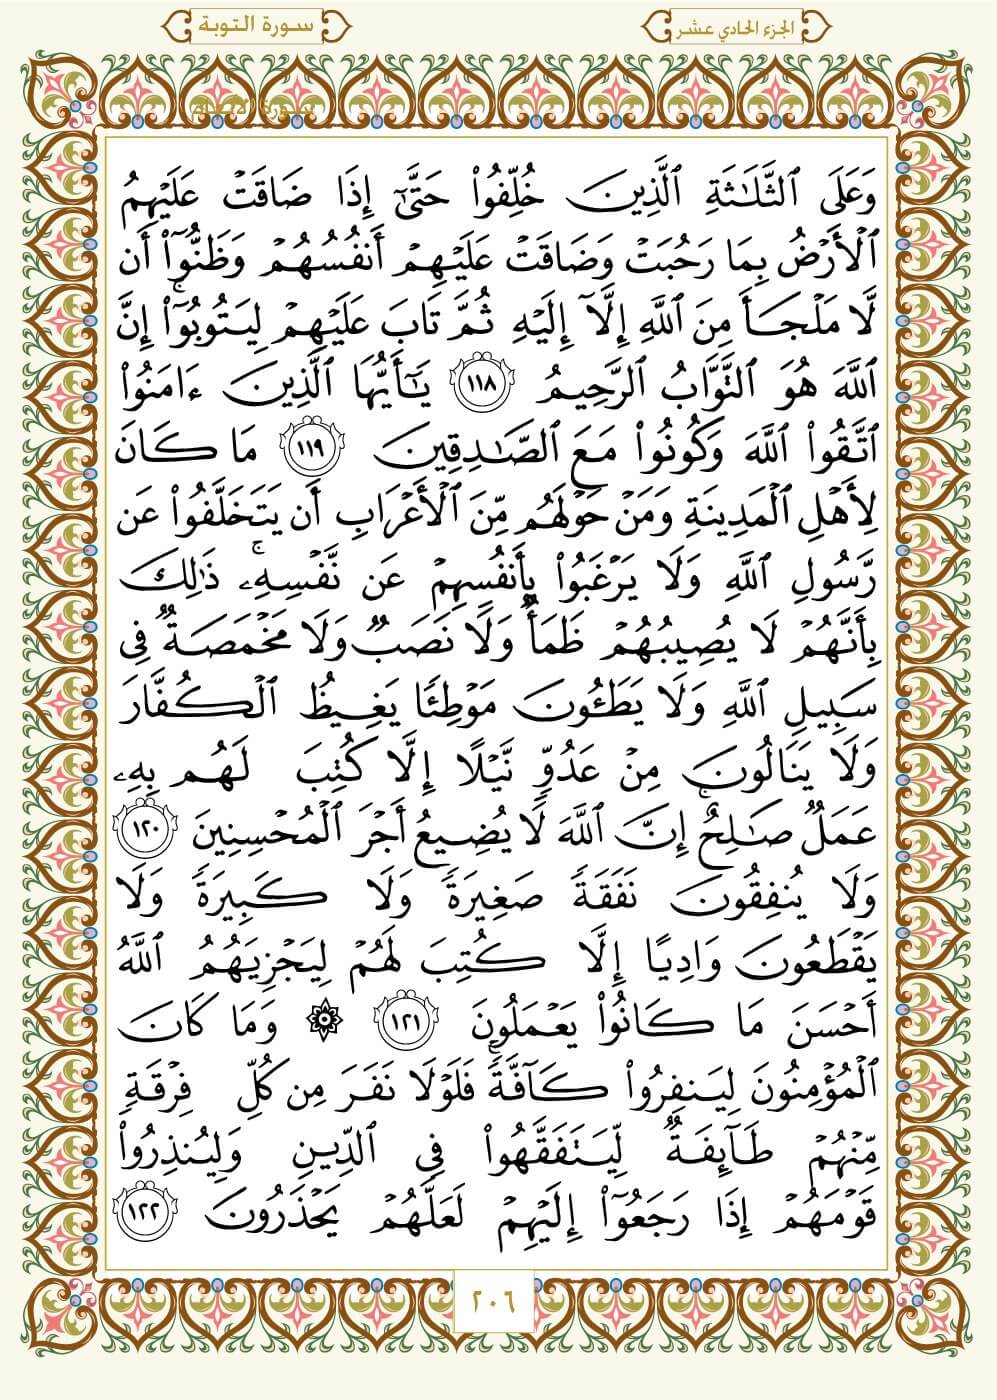 الجزء الحادي عشر
سورة التوبة
وَعَلَى ٱلثَّلَٰثَةِ ٱلَّذِينَ خُلِّفُوا۟ حَتَّىٰٓ إِذَا ضَاقَتْ عَلَيْهِمُ
ٱلْأَرْضُ بِمَا رَحُبَتْ وَضَاقَتْ عَلَيْهِمْ أَنفُسُهُمْ وَظَنُّوٓا۟ أَن
لَّا مَلْجَأَ مِنَ ٱللَّهِ إِلَّآ إِلَيْهِ ثُمَّ تَابَ عَلَيْهِمْ لِيَتُوبُوٓا۟ ۚ إِنَّ
ٱللَّهَ هُوَ ٱلتَّوَّابُ ٱلرَّحِيمُ ١١٨ يَٰٓأَيُّهَا ٱلَّذِينَ ءَامَنُوا۟
ٱتَّقُوا۟ ٱللَّهَ وَكُونُوا۟ مَعَ ٱلصَّٰدِقِينَ ١١٩ مَا كَانَ
لِأَهْلِ ٱلْمَدِينَةِ وَمَنْ حَوْلَهُم مِّنَ ٱلْأَعْرَابِ أَن يَتَخَلَّفُوا۟ عَن
رَّسُولِ ٱللَّهِ وَلَا يَرْغَبُوا۟ بِأَنفُسِهِمْ عَن نَّفْسِهِۦ ۚ ذَٰلِكَ
بِأَنَّهُمْ لَا يُصِيبُهُمْ ظَمَأٌ وَلَا نَصَبٌ وَلَا مَخْمَصَةٌ فِى
سَبِيلِ ٱللَّهِ وَلَا يَطَـُٔونَ مَوْطِئًا يَغِيظُ ٱلْكُفَّارَ
وَلَا يَنَالُونَ مِنْ عَدُوٍّ نَّيْلًا إِلَّا كُتِبَ لَهُم بِهِۦ
عَمَلٌ صَٰلِحٌ ۚ إِنَّ ٱللَّهَ لَا يُضِيعُ أَجْرَ ٱلْمُحْسِنِينَ ١٢٠
وَلَا يُنفِقُونَ نَفَقَةً صَغِيرَةً وَلَا كَبِيرَةً وَلَا
يَقْطَعُونَ وَادِيًا إِلَّا كُتِبَ لَهُمْ لِيَجْزِيَهُمُ ٱللَّهُ
أَحْسَنَ مَا كَانُوا۟ يَعْمَلُونَ ١٢١ ۞ وَمَا كَانَ
ٱلْمُؤْمِنُونَ لِيَنفِرُوا۟ كَآفَّةً ۚ فَلَوْلَا نَفَرَ مِن كُلِّ فِرْقَةٍ
مِّنْهُمْ طَآئِفَةٌ لِّيَتَفَقَّهُوا۟ فِى ٱلدِّينِ وَلِيُنذِرُوا۟
قَوْمَهُمْ إِذَا رَجَعُوٓا۟ إِلَيْهِمْ لَعَلَّهُمْ يَحْذَرُونَ ١٢٢
٢٠٦